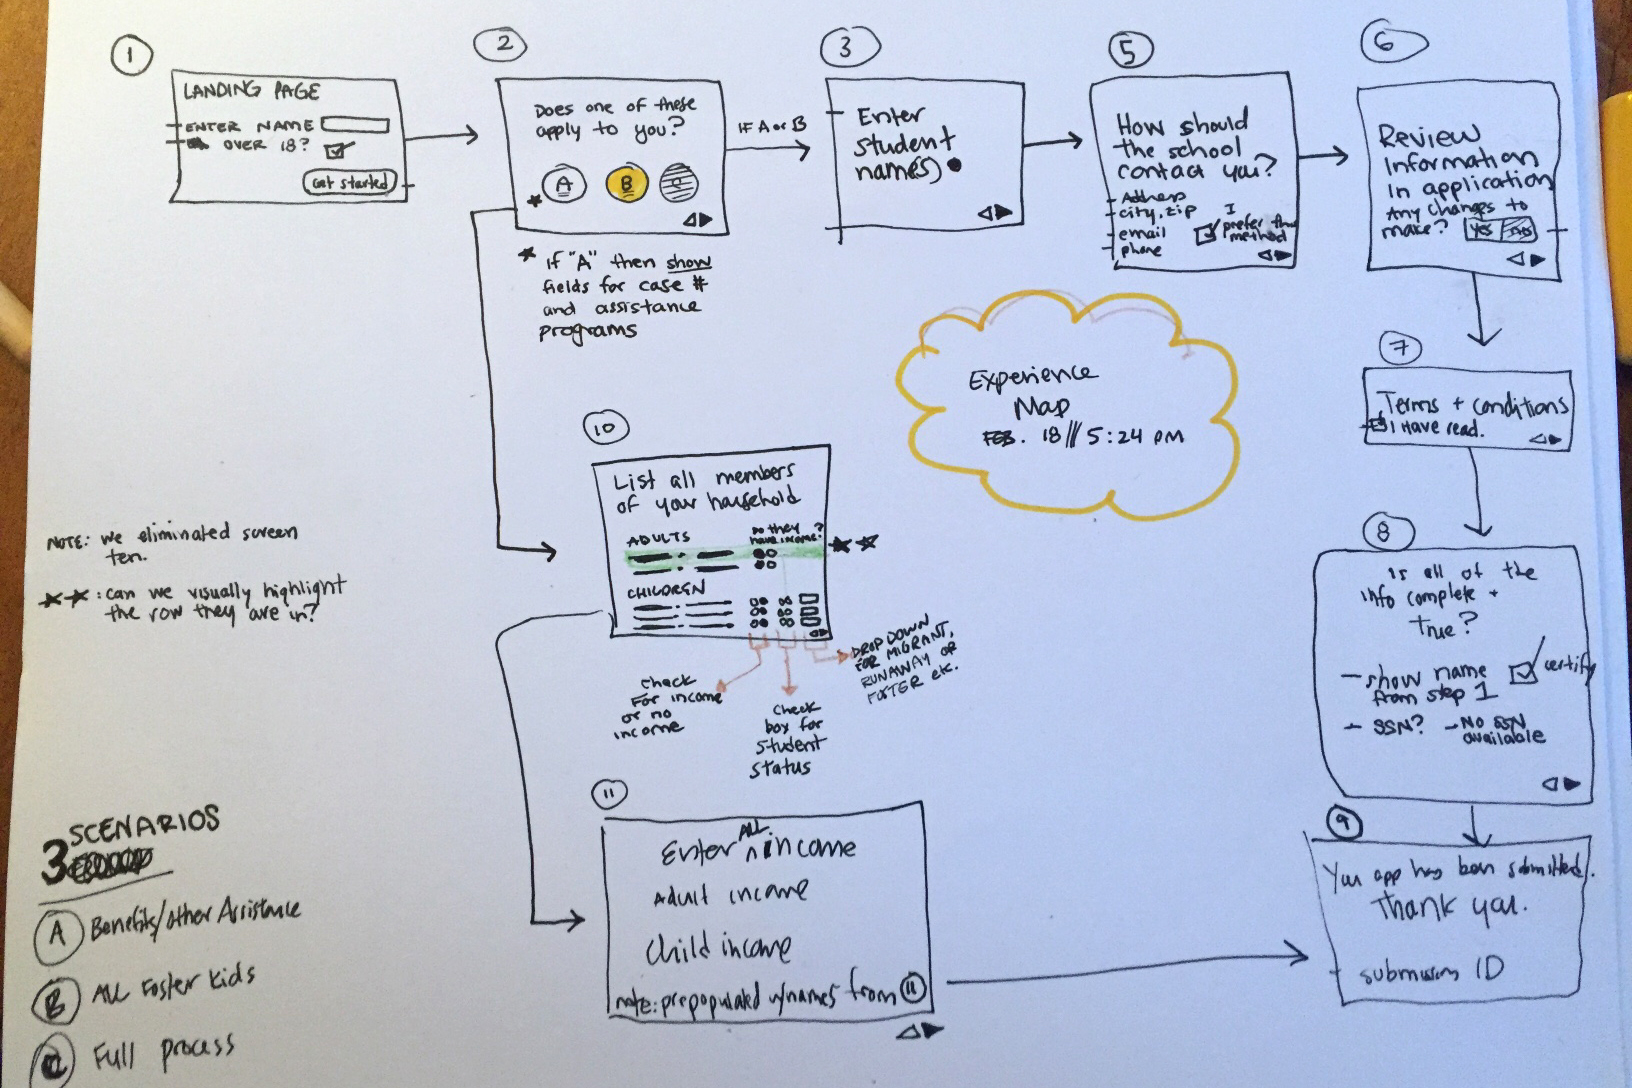 1
LANDING PAGE
ENTER NAME
OVER 18?
Get started
2
Does one of these
apply to you?
A B C
*
* if "A" then show
fields for case #
and assistance
programs
IF A or B
3
Enter
student
name(s)
5
How should
the school
contact you?
Address
city, zip
email
phone
I
prefer this
method
6
Review
information
in application
Any changes to
make? Yes No
7
Terms + conditions
I Have read.
8
is all of the
info complete +
True?
- show name
from step 1
certify
- SSN? - No SSN
available
9
Your app has been submitted.
Thank you.
submission ID
Experience
Map
FEB. 18 /// 5:24 PM
10
List all members
of your household
ADULTS
Do they
have income?
CHILDREN
**
check
for income
or no
income
check
box for
student
status
DROP DOWN
FOR MIGRANT,
RUNAWAY OR
FOSTER etc.
11
Enter ALL income
Adult income
Child income
note: prepopulated w/names from 11
NOTE: we eliminated screen
ten.
**: can we visually highlight
the row they are in?
3 SCENARIOS
A Benefits/other Assistance
B ALL Foster kids
C Full process